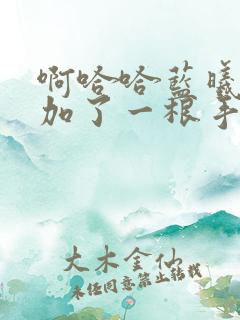 啊哈哈蓝曦
加了一根手
大木金仙
未经同意禁止转载